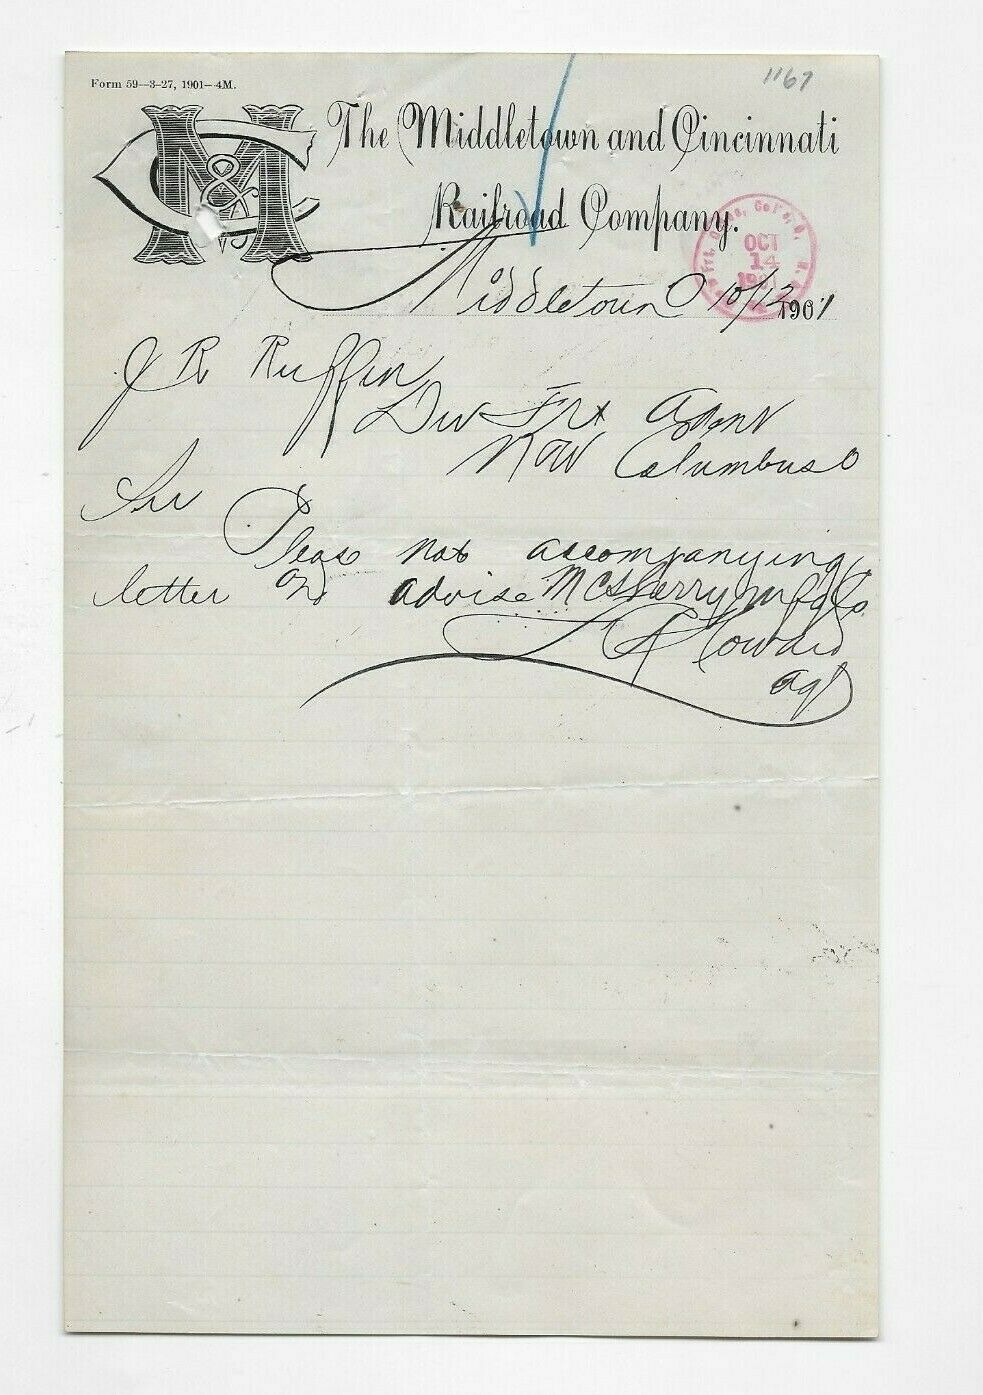 1167
Form 59—3-27, 1901—4M.
M&C
The Middletown and Cincinnati
Railroad Company.
Frt. Dept. Col's, O.
OCT
14
1901
Middletown O 10/13 1901
J R Ruffin
Div Frt Agent
N&W Columbus O
Sir
Please not accompanying
letter and advise McSherry Mfg Co.
Howard
agt